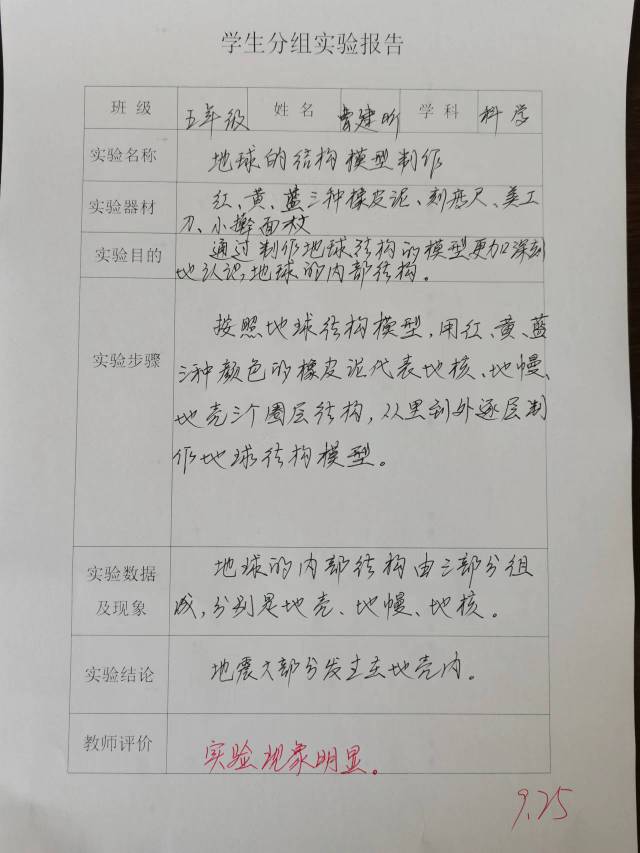 学生分组实验报告
班 级 五年级 姓 名 曹建昕 学 科 科学
实验名称 地球的结构模型制作
实验器材 红、黄、蓝三种橡皮泥、刻度尺、美工
刀、小擀面杖
实验目的 通过制作地球结构的模型更加深刻
地认识地球的内部结构。
按照地球结构模型,用红、黄、蓝
实验步骤 三种颜色的橡皮泥代表地核、地幔、
地壳三个圈层结构,从里到外逐层制
作地球结构模型。
实验数据 地球的内部结构由三部分组
及现象 成,分别是地壳、地幔、地核。
实验结论 地震大部分发生在地壳内。
教师评价 实验现象明显。
9.25